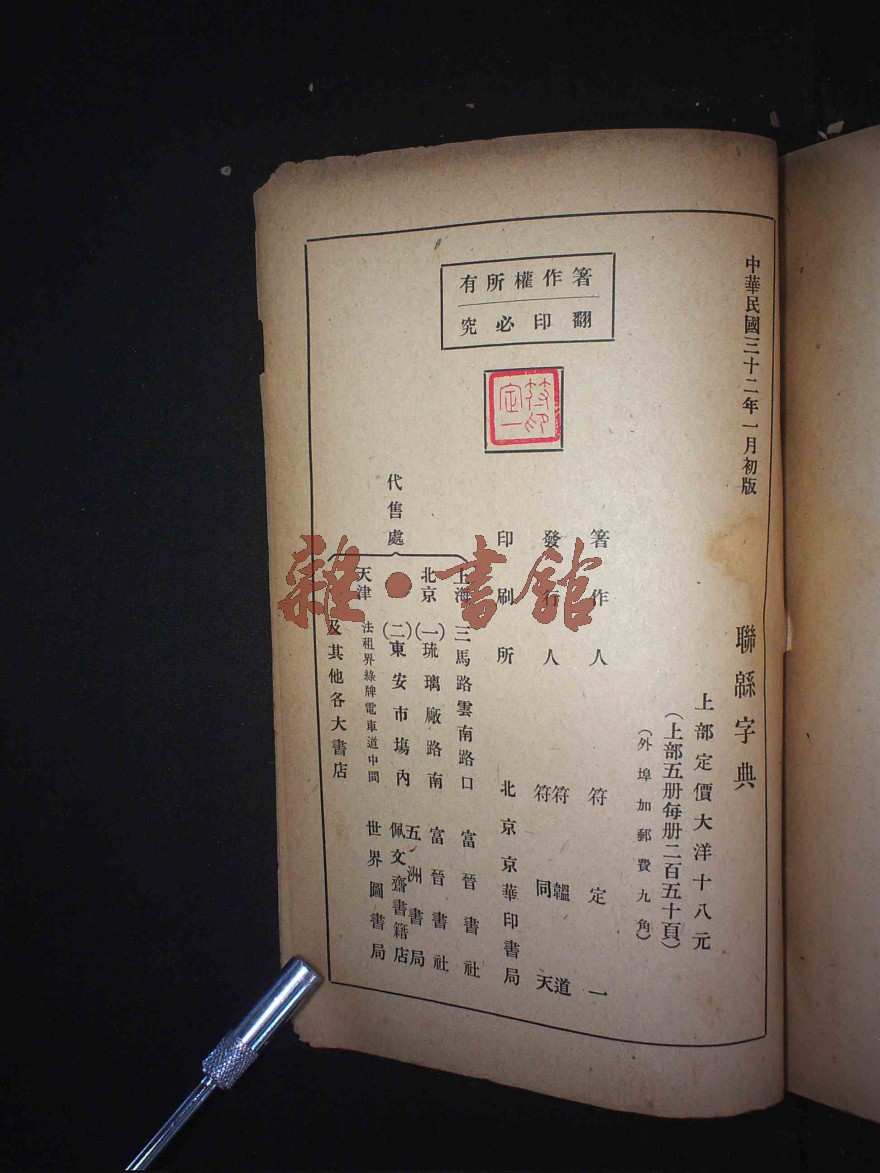 中華民國三十二年一月初版
聯緜字典
上部定價大洋十八元
(上部五册每册二百五十頁)
(外埠加郵費九角)
箸作權所有
翻印必究
符定一印
箸作人 符定一
發行人 符韞道
符同天
印刷所 北京京華印書局
代售處
上海 三馬路雲南路口 富晉書社
北京 (一)琉璃廠路南 富晉書社
五洲書局
(二)東安市塲內 佩文齋書籍店
天津 法租界綠牌電車道中間 世界圖書局
及其他各大書店
雜·書館